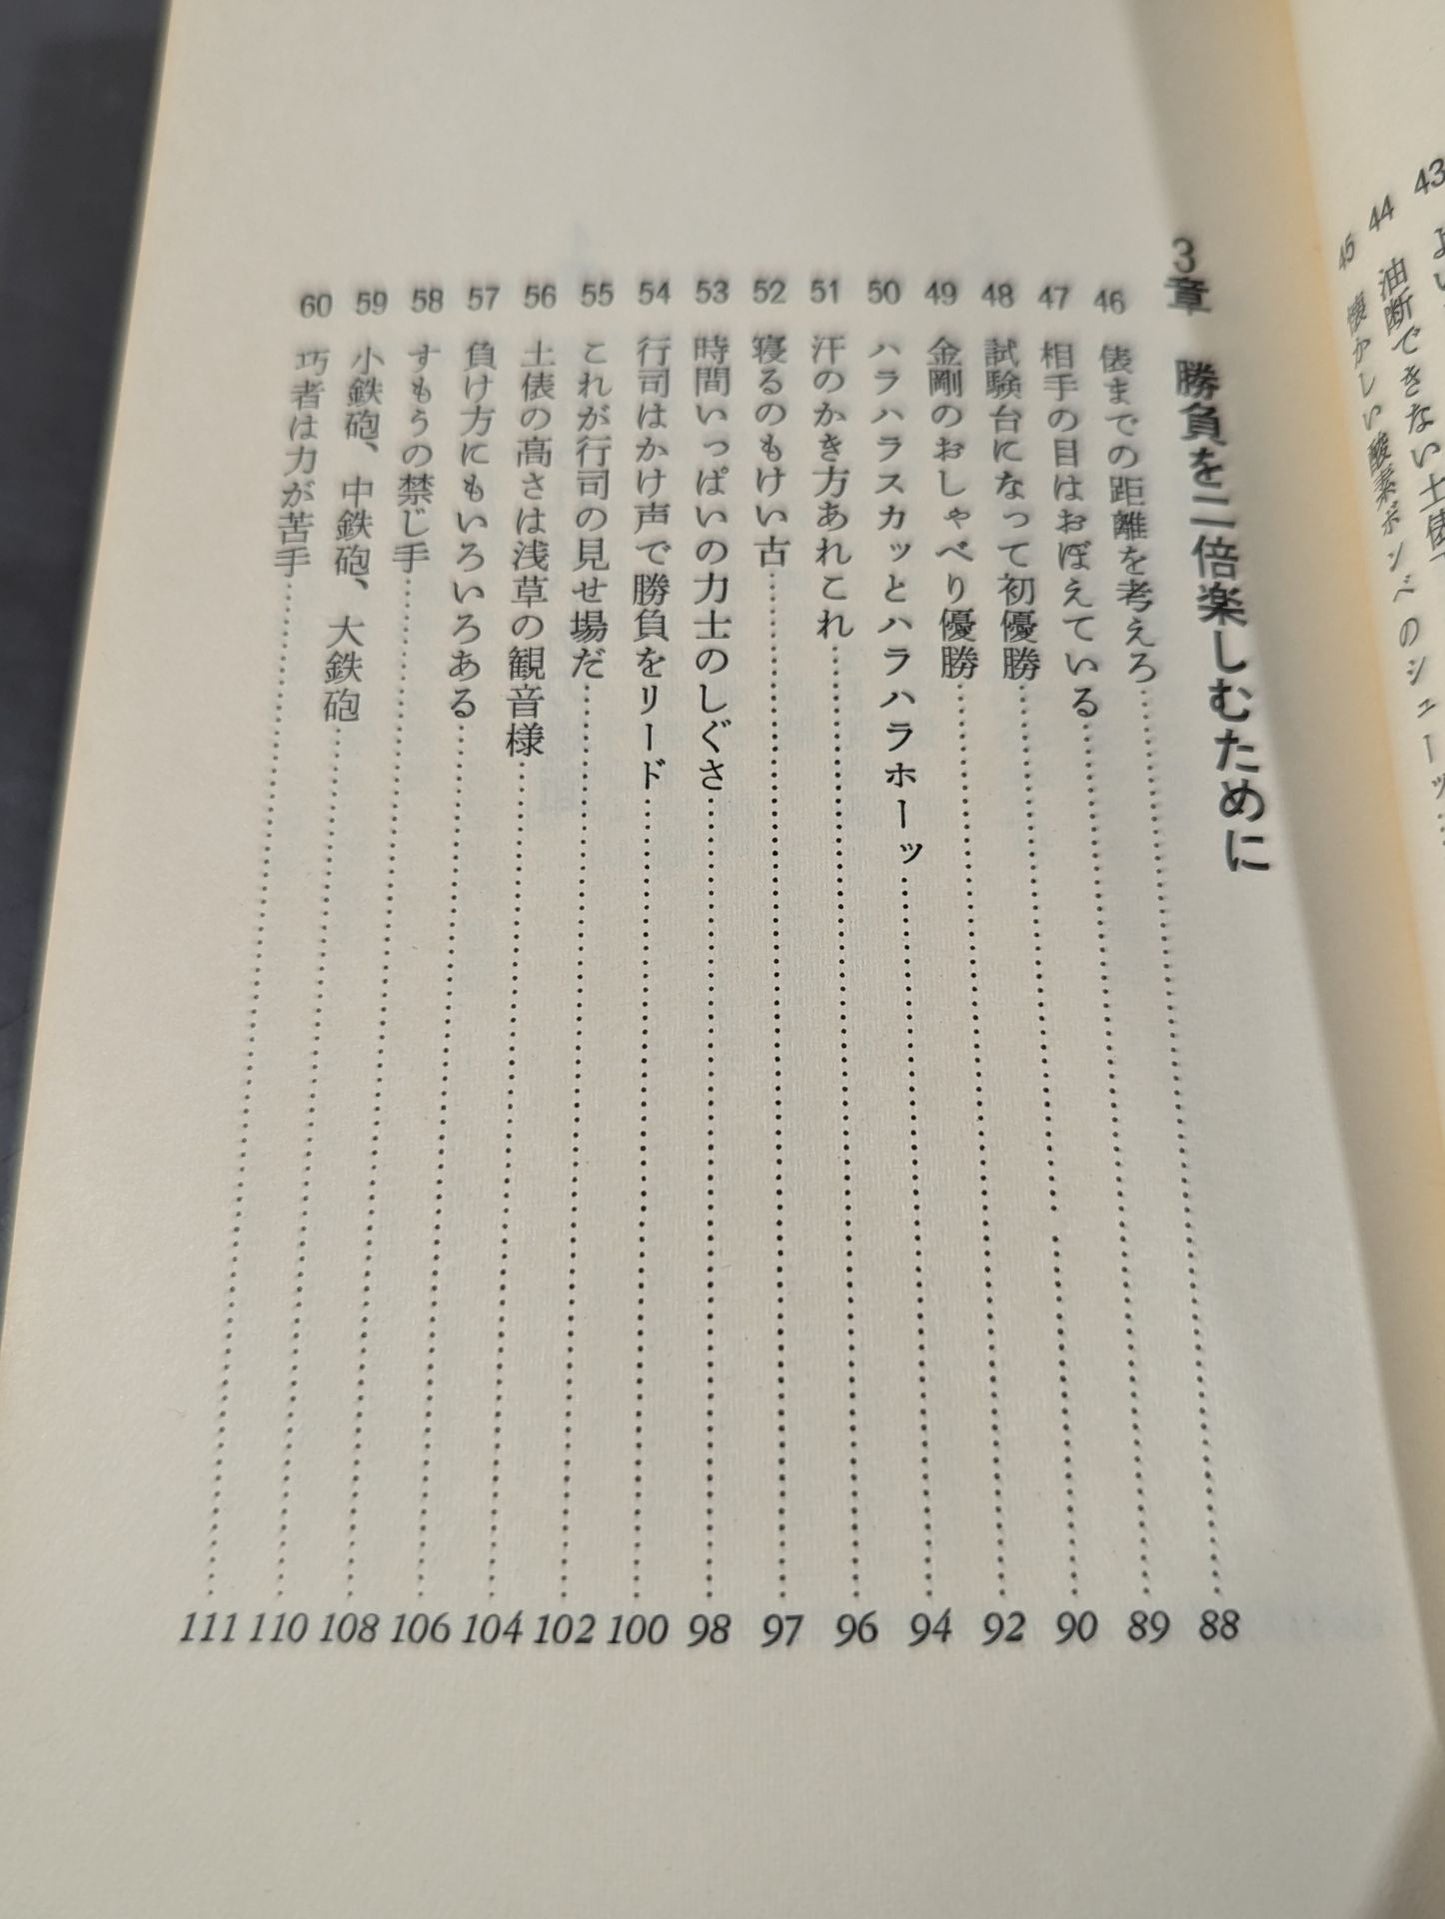 43
44 油断できない土俵
45 懐かしい酸素ボンベのシューッ…
3章 勝負を二倍楽しむために
46 俵までの距離を考えろ……88
47 相手の目はおぼえている……89
48 試験台になって初優勝……90
49 金剛のおしゃべり優勝……92
50 ハラハラスカッとハラハラホーッ……94
51 汗のかき方あれこれ……96
52 寝るのもけい古……97
53 時間いっぱいの力士のしぐさ……98
54 行司はかけ声で勝負をリード……100
55 これが行司の見せ場だ……102
56 土俵の高さは浅草の観音様……104
57 負け方にもいろいろある……106
58 すもうの禁じ手……108
59 小鉄砲、中鉄砲、大鉄砲……110
60 巧者は力が苦手……111